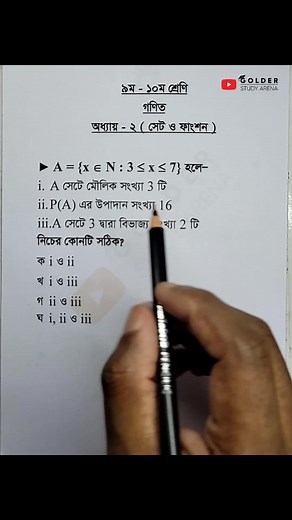 GOLDER
STUDY ARENA
৯ম - ১০ম শ্রেণি
গণিত
অধ্যায় - ২ ( সেট ও ফাংশন )
► A = {x ∈ N : 3 ≤ x ≤ 7} হলে–
i. A সেটে মৌলিক সংখ্যা 3 টি
ii. P(A) এর উপাদান সংখ্যা 16
iii. A সেটে 3 দ্বারা বিভাজ্য 2 টি
নিচের কোনটি সঠিক?
ক i ও ii
খ i ও iii
গ ii ও iii
ঘ i, ii ও iii